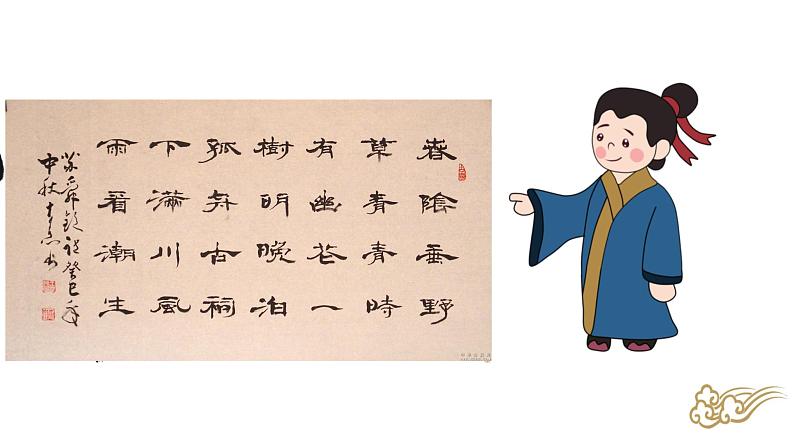 春陰垂野
草青青時
有幽花一
樹明晚泊
孤舟古祠
下滿川風
雨看潮生
苏舜钦诗癸巳年
中秋